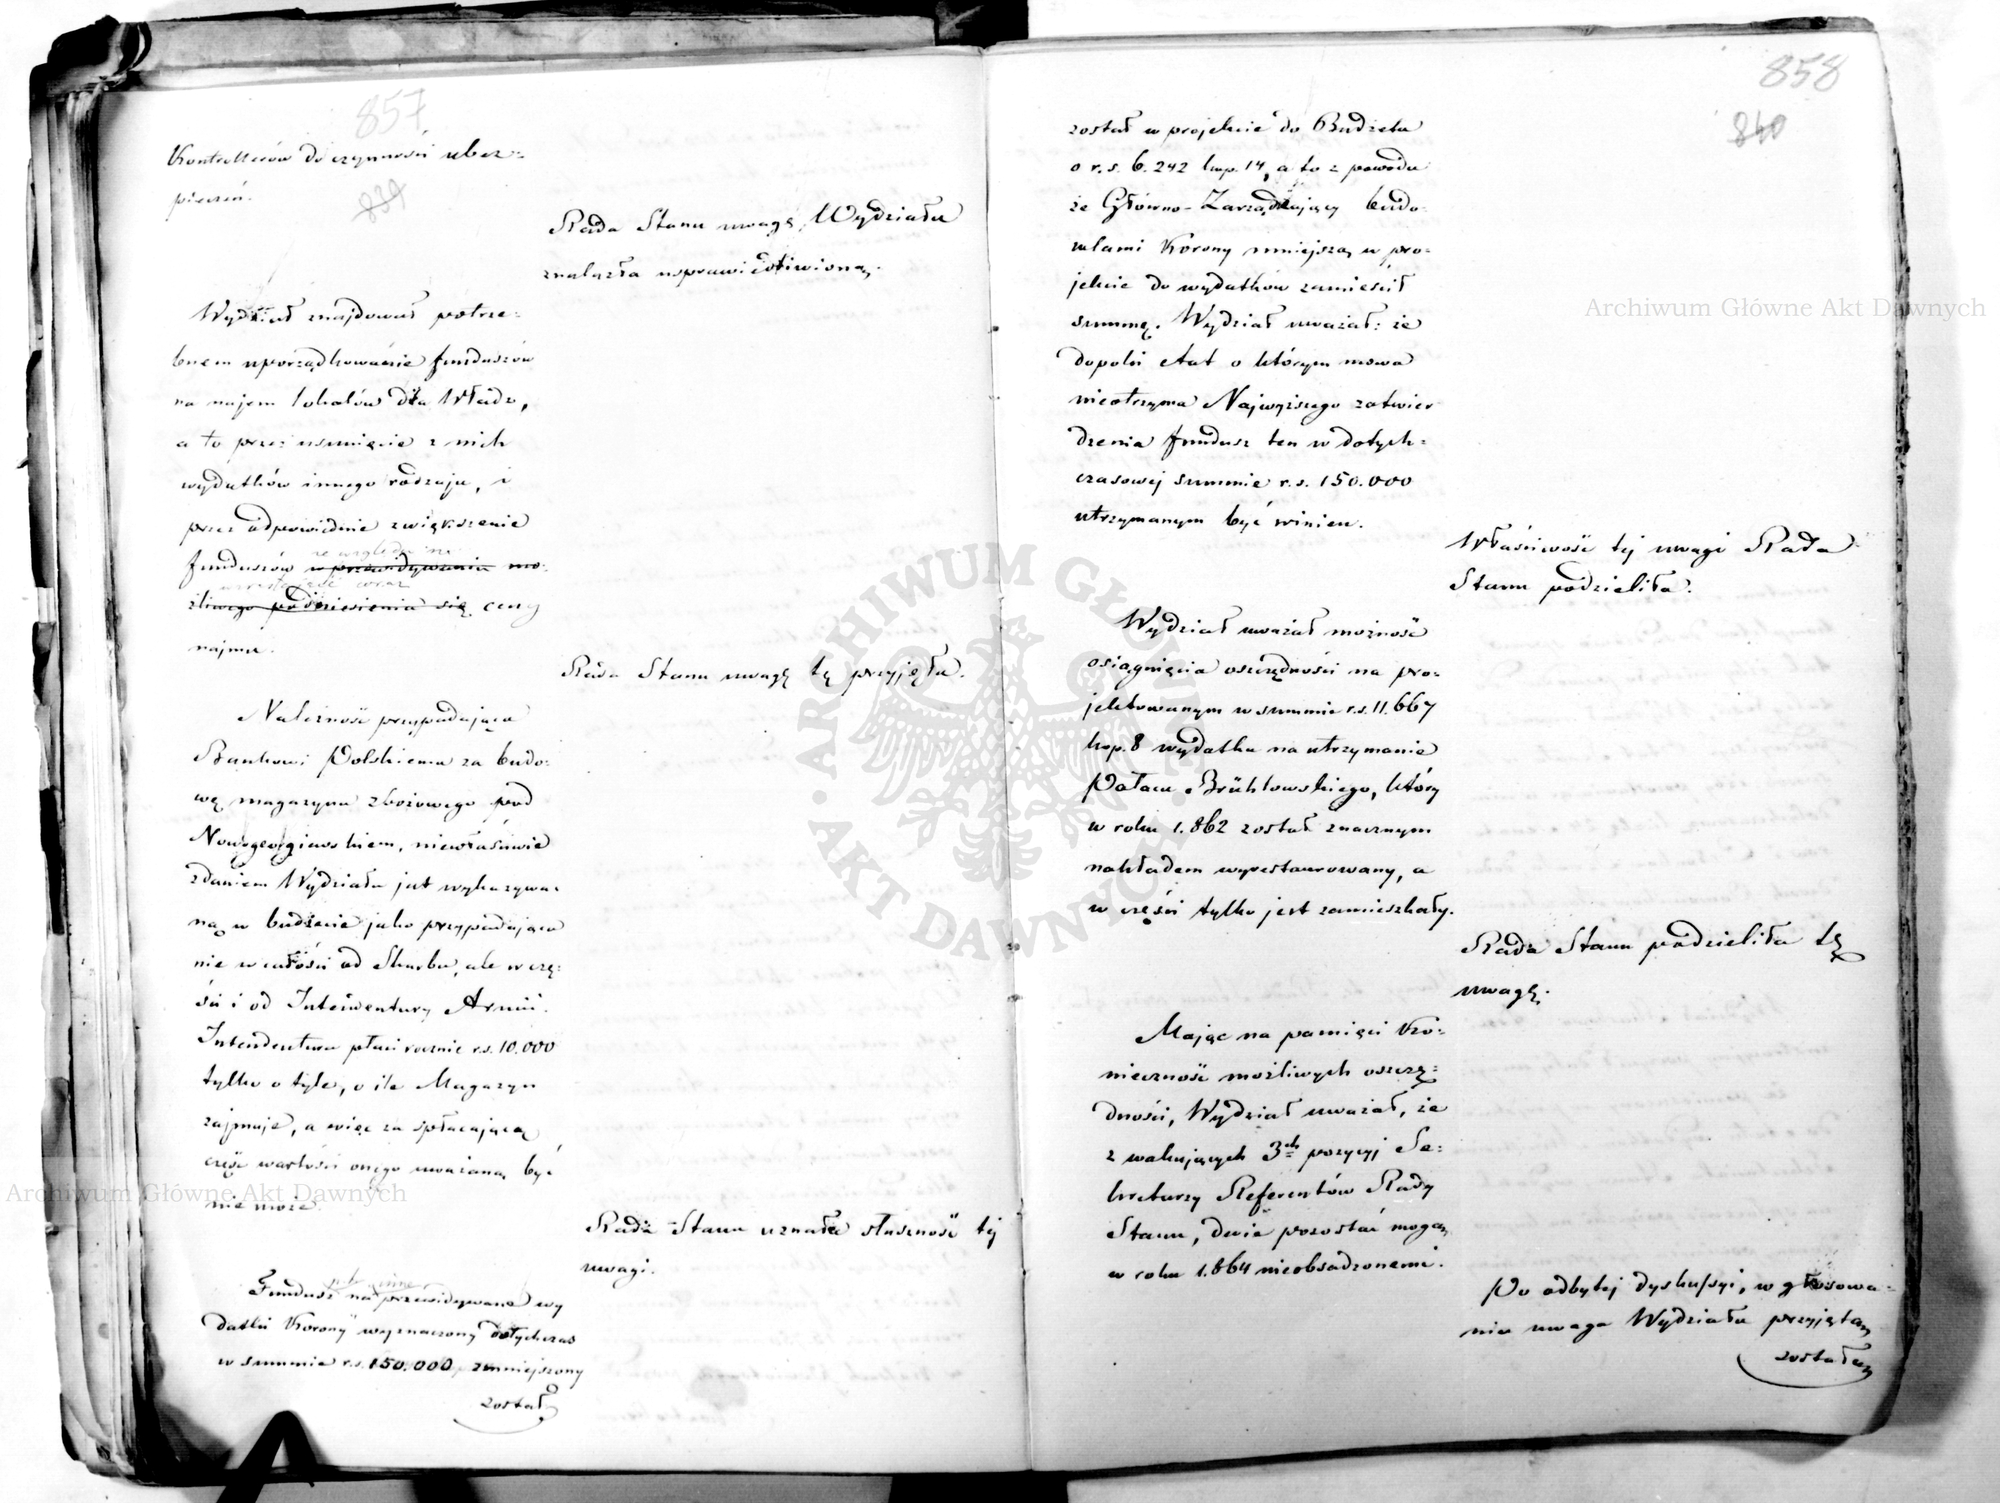 857
Kontrollerów do czynności ubez-
pieczeń.
839
Rada Stanu uwagę Wydziału
znalazła usprawiedliwioną.
Wydział znajdował potrze-
bnem uporządkowanie funduszów
na najem lokalów dla Władz,
a to przez usunięcie z nich
wydatków innego rodzaju, i
przez odpowiednie zwiększenie
ze względu na
funduszów w przewidywaniu mo-
wzrastającą coraz
żliwego podniesienia się ceny
najmu.
Rada Stanu uwagę tę przyjęła.
Należność przypadająca
Bankowi Polskiemu za budo-
wę magazynu zbożowego pod
Nowogeorgiewskiem, niewłaściwie
zdaniem Wydziału jest wykazywa-
ną w budżecie jako przypadająca
nie w całości od Skarbu, ale w czę-
ści i od Intendentury Armii.
Intendentura płaci rocznie r.s. 10.000
tylko o tyle, o ile Magazyn
zajmuje, a więc za spłacającą
część wartości onego uważaną być
nie może.
Rada Stanu uznała słuszność tej
uwagi.
Fundusz na przewidywane wy
datki Korony wyznaczony dotychczas
w summie r.s. 150.000, zmniejszony
został
858
840
został w projekcie do Budżetu
o r.s. 6.242 kop. 14, a to z powodu
że Główno-Zarządzający budo-
wlami Korony mniejszą w pro-
jekcie do wydatków zamieścił
summę. Wydział uważał: że
dopóki Etat o którym mowa
nieotrzyma Najwyższego zatwier
dzenia fundusz ten w dotych-
czasowej summie r.s. 150.000
utrzymanym być winien.
Właściwość tej uwagi Rada
Stanu podzieliła.
Wydział uważał możność
osiągnięcia oszczędności na pro-
jektowanym w summie r.s. 11.667
kop. 8 wydatku na utrzymanie
Pałacu Brühlowskiego, który
w roku 1.862 został znacznym
nakładem wyrestaurowany, a
w części tylko jest zamieszkały.
Rada Stanu podzieliła tę
uwagę.
Mając na pamięci Ko-
nieczność możliwych oszczę-
dności, Wydział uważał, że
z wakujących 3ch pozycyj Se-
kretarzy Referentów Rady
Stanu, dwie pozostać mogą
w roku 1.864 nieobsadzonemi.
Po odbytej dyskussyi, w głosowa-
niu uwaga Wydziału przyjętą
została
Archiwum Główne Akt Dawnych
Archiwum Główne Akt Dawnych
ARCHIWUM GŁÓWNE AKT DAWNYCH